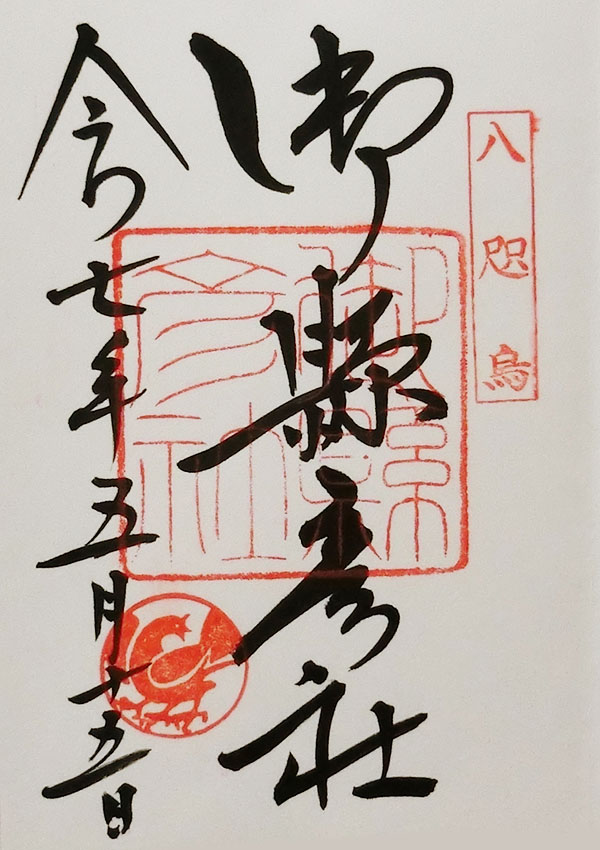 八咫烏
御縣彦社
御縣彦社
令七年五月十五日